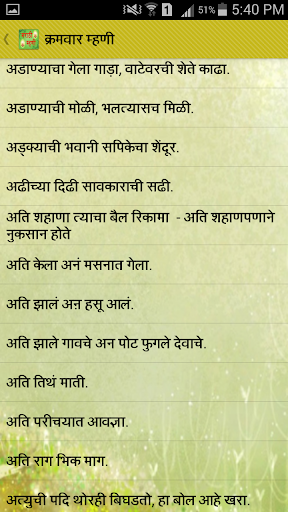 51% 5:40 PM
क्रमवार म्हणी
अडाण्याचा गेला गाडा, वाटेवरची शेते काढा.
अडाण्याची मोळी, भलत्यासच मिळी.
अड्क्याची भवानी सपिकेचा शेंदूर.
अढीच्या दिढी सावकाराची सढी.
अति शहाणा त्याचा बैल रिकामा - अति शहाणपणाने
नुकसान होते
अति केला अनं मसनात गेला.
अति झालं अऩ हसू आलं.
अति झाले गावचे अन पोट फुगले देवाचे.
अति तिथं माती.
अति परीचयात आवज्ञा.
अति राग भिक माग.
अत्युची पदि थोरही बिघडतो, हा बोल आहे खरा.